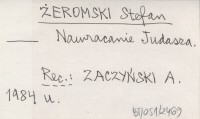 ŻEROMSKI Stefan
Nawracanie Judasza.
Rec.: ZACZYŃSKI A.
1984 u.